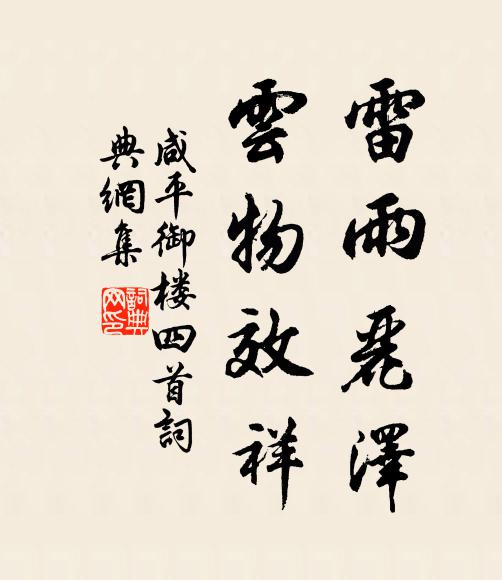 雷雨麗澤
雲物效祥
咸平御楼四首詞
典網集
詞典网印